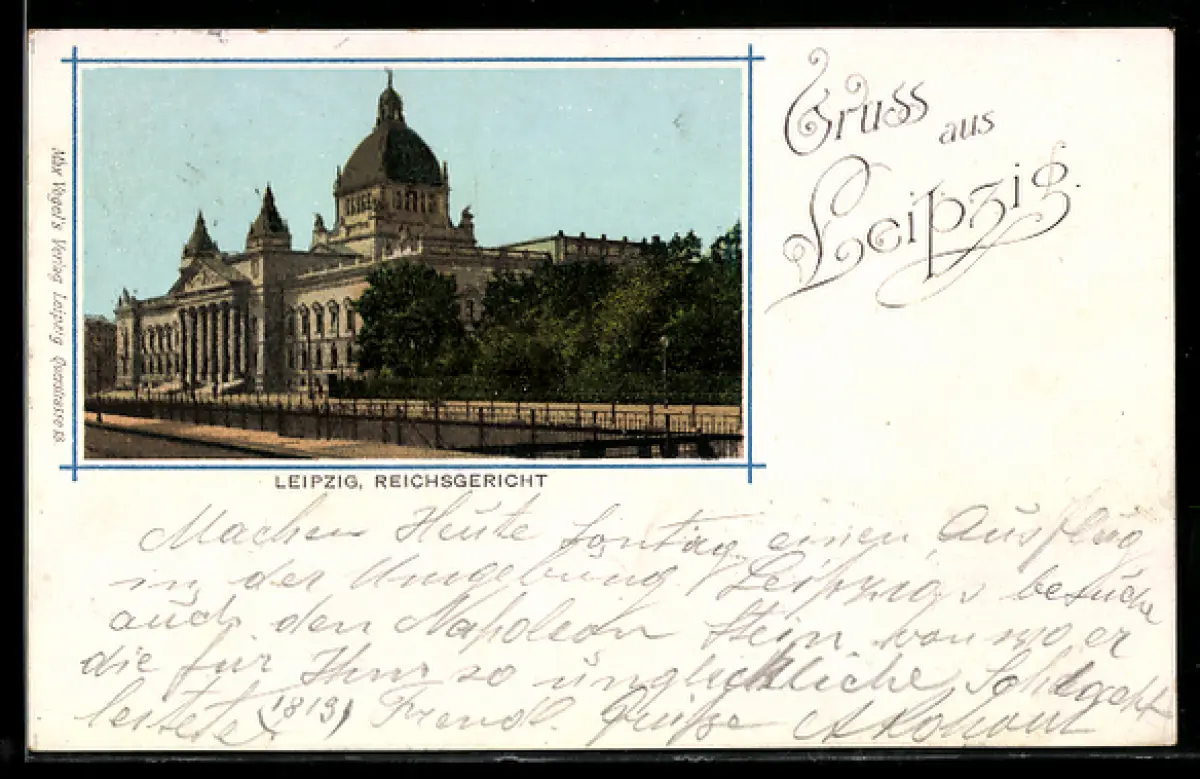 Gruss aus
Leipzig.
Max Vogel's Verlag Leipzig Querstrasse 13
LEIPZIG, REICHSGERICHT
Machen Heute Sontag einen Ausflug
in der Umgebung Leipzigs besuche
auch den Napoleon Stein von wo er
die für Ihm so unglückliche Schlacht
leitete (1813) Frendl. Grüße